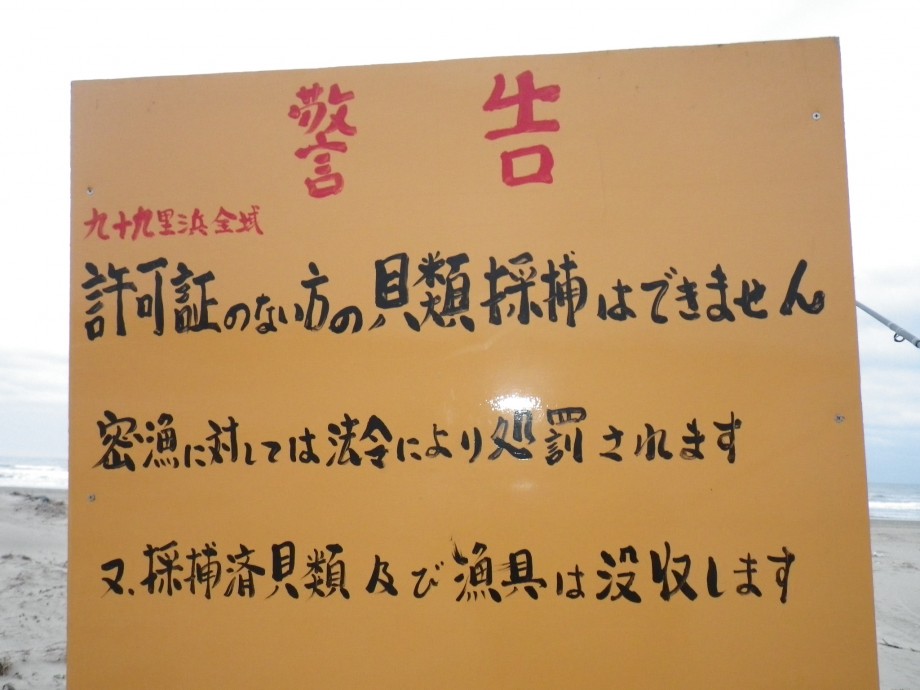 警告
九十九里浜全域
許可証のない方の貝類採捕はできません
密漁に対しては法令により処罰されます
又、採捕済貝類及び漁具は没収します